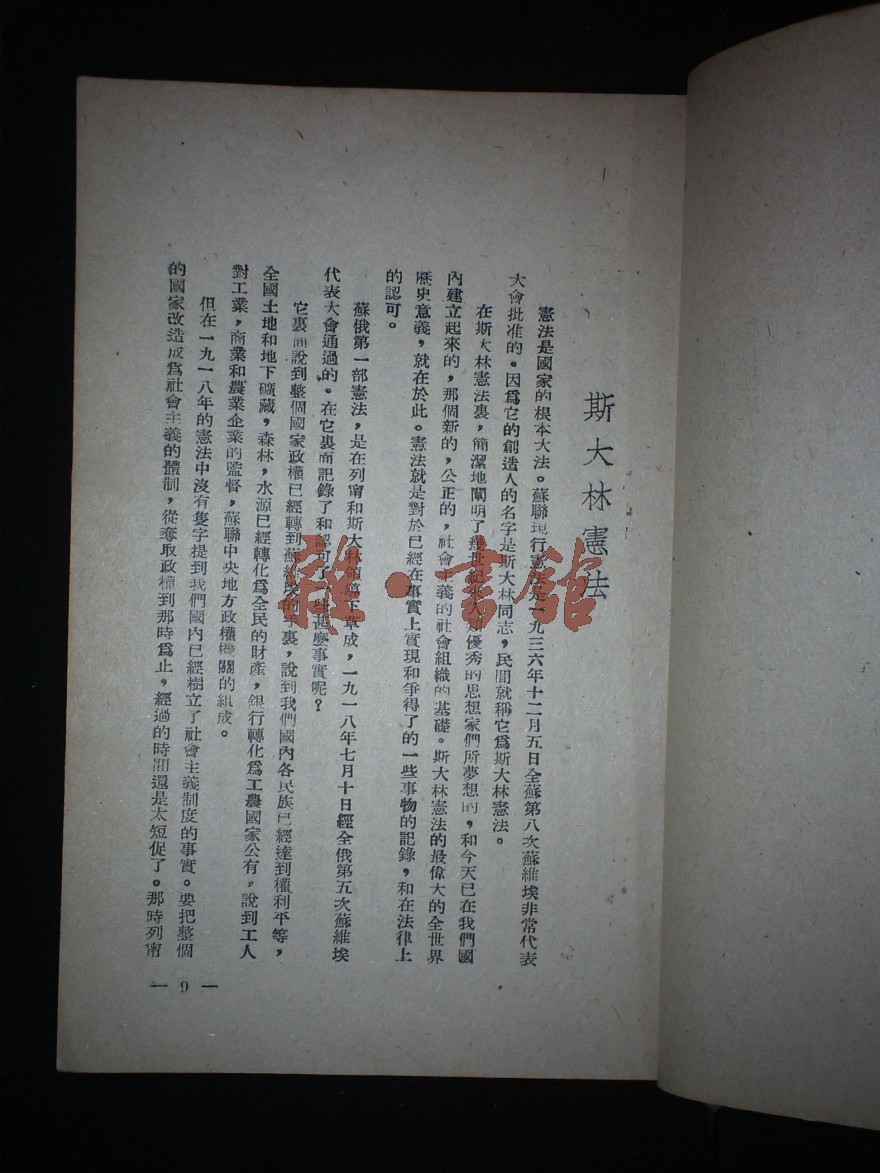 斯大林憲法
憲法是國家的根本大法。蘇聯現行憲法是一九三六年十二月五日全蘇第八次蘇維埃非常代表
大會批准的。因爲它的創造人的名字是斯大林同志，民間就稱它爲斯大林憲法。
在斯大林憲法裏，簡潔地闡明了幾世紀來人類優秀的思想家們所夢想的，和今天已在我們國
內建立起來的，那個新的，公正的，社會主義的社會組織的基礎。斯大林憲法的最偉大的全世界
歷史意義，就在於此。憲法就是對於已經在事實上實現和爭得了的一些事物的記錄，和在法律上
的認可。
蘇俄第一部憲法，是在列甯和斯大林領導下草成，一九一八年七月十日經全俄第五次蘇維埃
代表大會通過的。在它裏面記錄了和認可了一些甚麼事實呢？
它裏面說到整個國家政權已經轉到蘇維埃的手裏，說到我們國內各民族已經達到權利平等，
全國土地和地下礦藏，森林，水源已經轉化爲全民的財產，銀行轉化爲工農國家公有，說到工人
對工業，商業和農業企業的監督，蘇聯中央地方政權機關的組成。
但在一九一八年的憲法中沒有隻字提到我們國內已經樹立了社會主義制度的事實。要把整個
的國家改造成爲社會主義的體制，從奪取政權到那時爲止，經過的時間還是太短促了。那時列甯
— 9 —
雜·書館